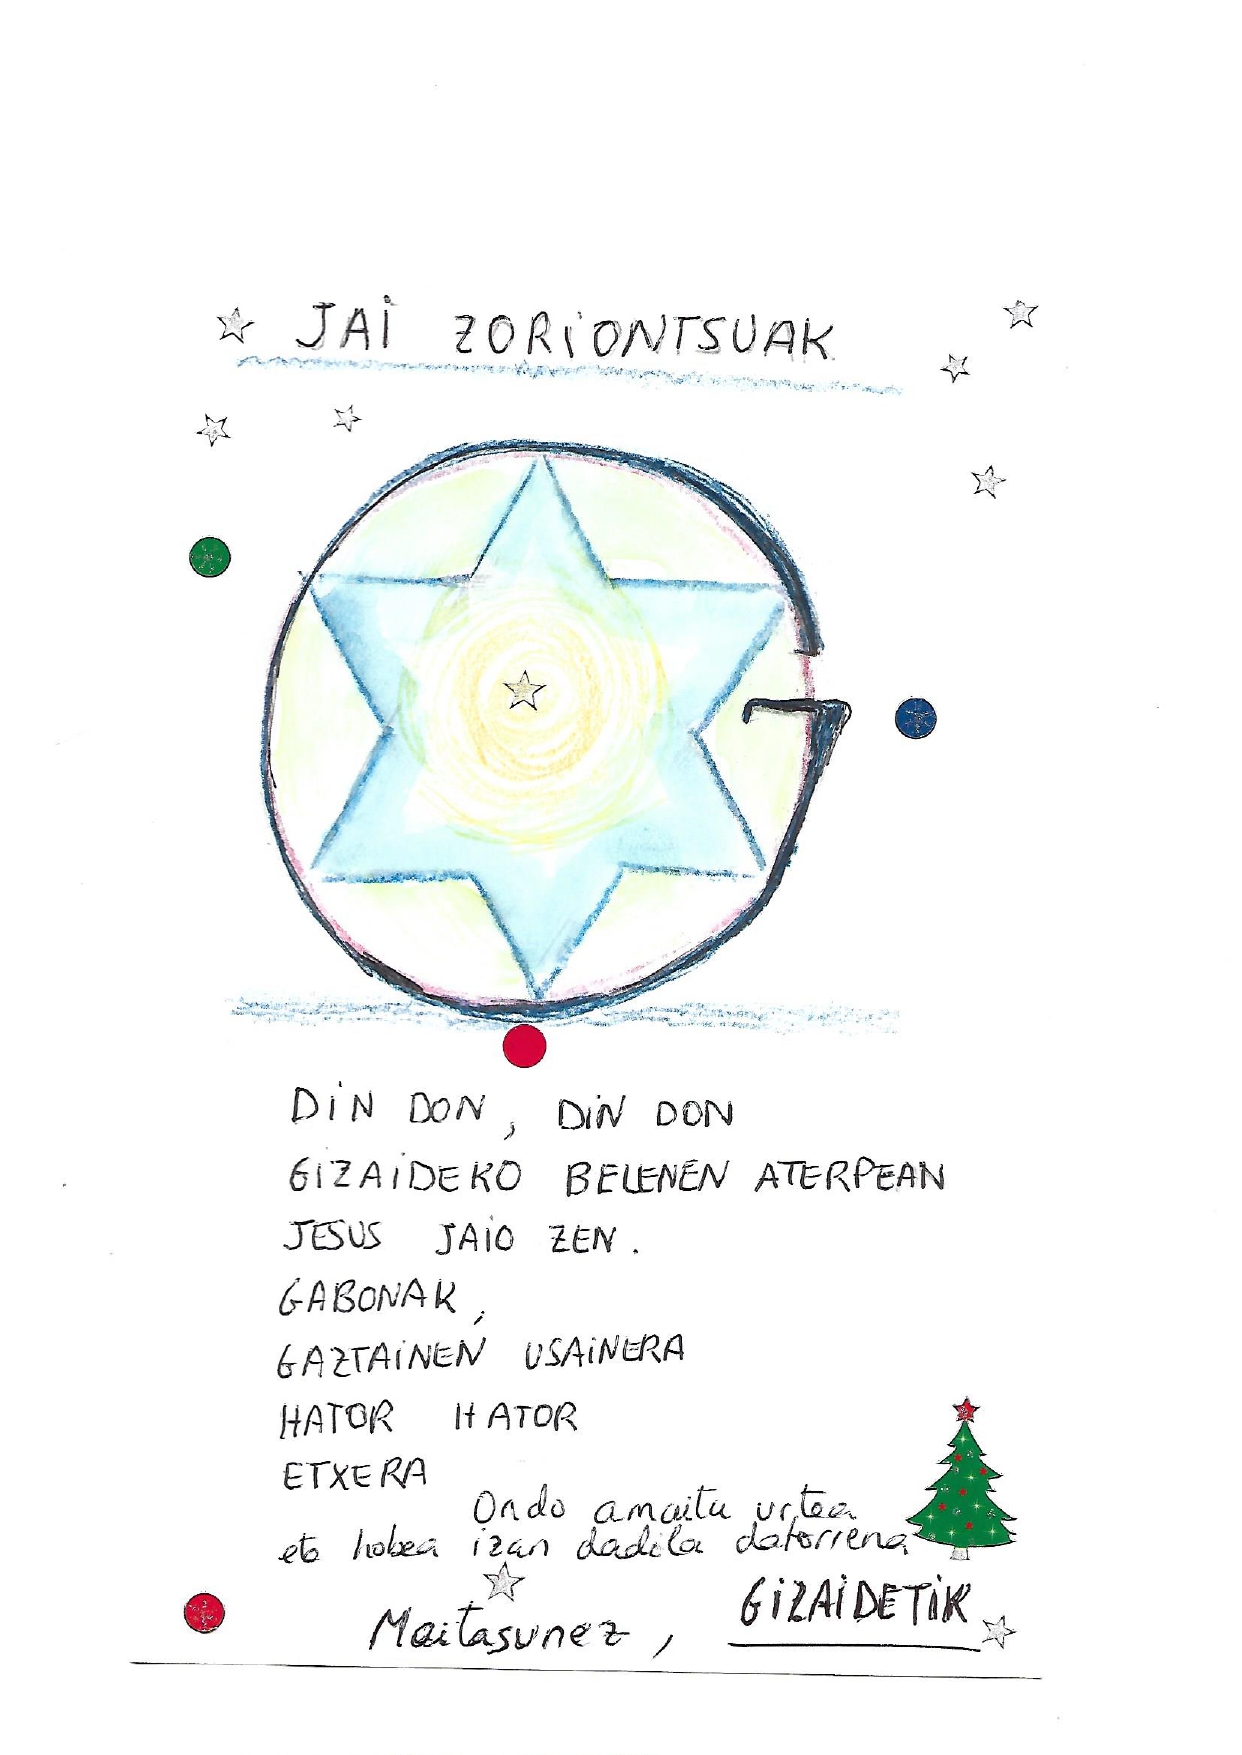 JAi ZORiONTSUAK
DiN DON, DiN DON
GiZAiDEKO BELENEN ATERPEAN
JESUS JAiO ZEN.
GABONAK,
GAZTAiNEN USAiNERA
HATOR HATOR
ETXERA
Ondo amaitu urtea
eta hobea izan dadila datorrena
Maitasunez, GiZAiDETiK